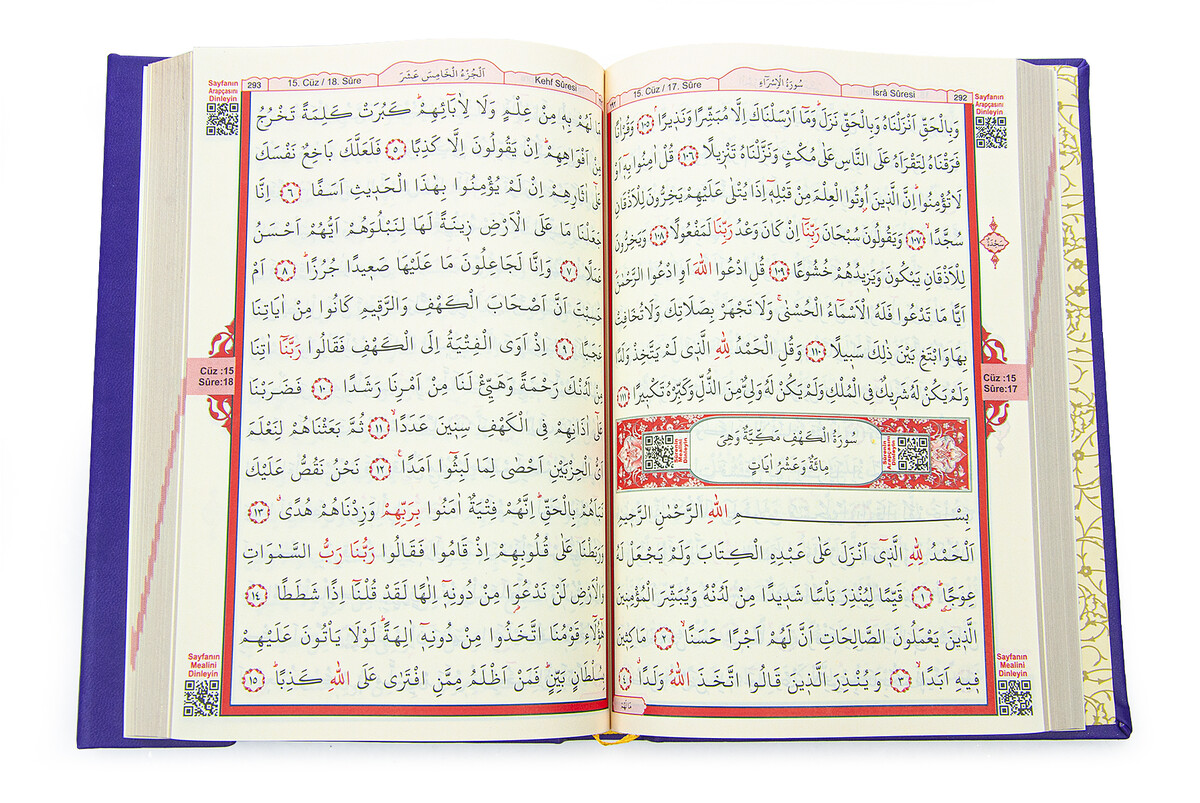 292
سُورَةُ الْاِسْرَٓاءِ
15. Cüz / 17. Sûre
İsrâ Sûresi
Sayfanın
Arapçasını
Dinleyin
وَبِالْحَقِّ اَنْزَلْنَاهُ وَبِالْحَقِّ نَزَلَۜ وَمَٓا اَرْسَلْنَاكَ اِلَّا مُبَشِّرًا وَنَذ۪يرًاۢ ﴿١٠٥﴾ وَقُرْاٰنًا
فَرَقْنَاهُ لِتَقْرَاَهُ عَلَى النَّاسِ عَلٰى مُكْثٍ وَنَزَّلْنَاهُ تَنْز۪يلًا ﴿١٠٦﴾ قُلْ اٰمِنُوا بِه۪ٓ اَوْ
لَا تُؤْمِنُواۜ اِنَّ الَّذ۪ينَ اُو۫تُوا الْعِلْمَ مِنْ قَبْلِه۪ٓ اِذَا يُتْلٰى عَلَيْهِمْ يَخِرُّونَ لِلْاَذْقَانِ
سُجَّدًاۙ ﴿١٠٧﴾ وَيَقُولُونَ سُبْحَانَ رَبِّنَٓا اِنْ كَانَ وَعْدُ رَبِّنَا لَمَفْعُولًا ﴿١٠٨﴾ وَيَخِرُّونَ
لِلْاَذْقَانِ يَبْكُونَ وَيَز۪يدُهُمْ خُشُوعًا ﴿١٠٩﴾ قُلِ ادْعُوا اللّٰهَ اَوِ ادْعُوا الرَّحْمٰنَۜ
اَيًّا مَا تَدْعُوا فَلَهُ الْاَسْمَٓاءُ الْحُسْنٰىۚ وَلَا تَجْهَرْ بِصَلَاتِكَ وَلَا تُخَافِتْ
بِهَا وَابْتَغِ بَيْنَ ذٰلِكَ سَب۪يلًا ﴿١١٠﴾ وَقُلِ الْحَمْدُ لِلّٰهِ الَّذ۪ي لَمْ يَتَّخِذْ وَلَدًا
وَلَمْ يَكُنْ لَهُ شَر۪يكٌ فِي الْمُلْكِ وَلَمْ يَكُنْ لَهُ وَلِيٌّ مِنَ الذُّلِّ وَكَبِّرْهُ تَكْب۪يرًا ﴿١١١﴾
سُورَةُ الْكَهْفِ مَكِّيَّةٌ وَهِيَ
مِائَةٌ وَعَشْرُ اٰيَاتٍ
بِسْمِ اللّٰهِ الرَّحْمٰنِ الرَّح۪يمِ
اَلْحَمْدُ لِلّٰهِ الَّذ۪ٓي اَنْزَلَ عَلٰى عَبْدِهِ الْكِتَابَ وَلَمْ يَجْعَلْ لَهُ
عِوَجًاۜ ﴿١﴾ قَيِّمًا لِيُنْذِرَ بَاْسًا شَد۪يدًا مِنْ لَدُنْهُ وَيُبَشِّرَ الْمُؤْمِن۪ينَ
الَّذ۪ينَ يَعْمَلُونَ الصَّالِحَاتِ اَنَّ لَهُمْ اَجْرًا حَسَنًاۙ ﴿٢﴾ مَاكِث۪ينَ
ف۪يهِ اَبَدًاۙ ﴿٣﴾ وَيُنْذِرَ الَّذ۪ينَ قَالُوا اتَّخَذَ اللّٰهُ وَلَدًاۗ ﴿٤﴾
مَا لَهُمْ
سَجْدَةٌ
Cüz :15
Sûre:17
Sayfanın
Mealini
Dinleyin
293
اَلْجُزْءُ الْخَامِسَ عَشَرَ
15. Cüz / 18. Sûre
Kehf Sûresi
Sayfanın
Arapçasını
Dinleyin
مَا لَهُمْ بِه۪ مِنْ عِلْمٍ وَلَا لِاٰبَٓائِهِمْۜ كَبُرَتْ كَلِمَةً تَخْرُجُ
مِنْ اَفْوَاهِهِمْۜ اِنْ يَقُولُونَ اِلَّا كَذِبًا ﴿٥﴾ فَلَعَلَّكَ بَاخِعٌ نَفْسَكَ
عَلٰٓى اٰثَارِهِمْ اِنْ لَمْ يُؤْمِنُوا بِهٰذَا الْحَد۪يثِ اَسَفًا ﴿٦﴾ اِنَّا
جَعَلْنَا مَا عَلَى الْاَرْضِ ز۪ينَةً لَهَا لِنَبْلُوَهُمْ اَيُّهُمْ اَحْسَنُ
عَمَلًا ﴿٧﴾ وَاِنَّا لَجَاعِلُونَ مَا عَلَيْهَا صَع۪يدًا جُرُزًاۜ ﴿٨﴾ اَمْ
حَسِبْتَ اَنَّ اَصْحَابَ الْكَهْفِ وَالرَّق۪يمِ كَانُوا مِنْ اٰيَاتِنَا
عَجَبًا ﴿٩﴾ اِذْ اَوَى الْفِتْيَةُ اِلَى الْكَهْفِ فَقَالُوا رَبَّنَٓا اٰتِنَا
مِنْ لَدُنْكَ رَحْمَةً وَهَيِّئْ لَنَا مِنْ اَمْرِنَا رَشَدًا ﴿١٠﴾ فَضَرَبْنَا
عَلٰٓى اٰذَانِهِمْ فِي الْكَهْفِ سِن۪ينَ عَدَدًاۙ ﴿١١﴾ ثُمَّ بَعَثْنَاهُمْ لِنَعْلَمَ
اَيُّ الْحِزْبَيْنِ اَحْصٰى لِمَا لَبِثُٓوا اَمَدًا۟ ﴿١٢﴾ نَحْنُ نَقُصُّ عَلَيْكَ
نَبَاَهُمْ بِالْحَقِّۜ اِنَّهُمْ فِتْيَةٌ اٰمَنُوا بِرَبِّهِمْ وَزِدْنَاهُمْ هُدًىۗ ﴿١٣﴾
وَرَبَطْنَا عَلٰى قُلُوبِهِمْ اِذْ قَامُوا فَقَالُوا رَبُّنَا رَبُّ السَّمٰوَاتِ
وَالْاَرْضِ لَنْ نَدْعُوَ۬ا مِنْ دُونِه۪ٓ اِلٰهًا لَقَدْ قُلْنَٓا اِذًا شَطَطًا ﴿١٤﴾
هٰٓؤُ۬لَٓاءِ قَوْمُنَا اتَّخَذُوا مِنْ دُونِه۪ٓ اٰلِهَةًۜ لَوْلَا يَاْتُونَ عَلَيْهِمْ
بِسُلْطَانٍ بَيِّنٍۜ فَمَنْ اَظْلَمُ مِمَّنِ افْتَرٰى عَلَى اللّٰهِ كَذِبًاۜ ﴿١٥﴾
Cüz :15
Sûre:18
Sayfanın
Mealini
Dinleyin